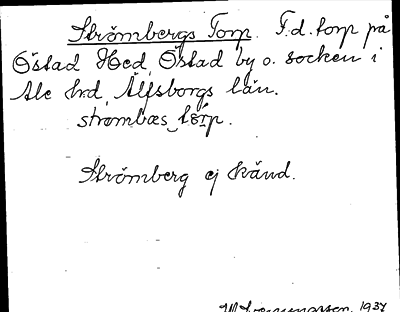 Strömbergs Torp. F.d. torp på
Östad Hed, Östad by o. socken i
Ale hrd, Älfsborgs län.
strömbæs torp.
Strömberg ej känd.
1937